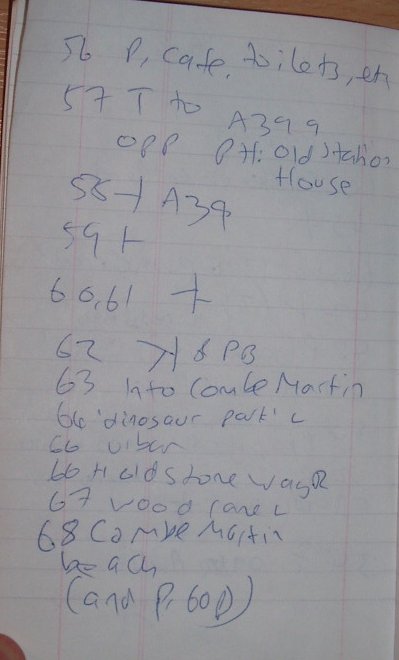 56 P, cafe, toilets, etc
57 T to A399
opp PH: Old Station
House
58 ⊣ A39
59 ⊢
60,61 +
62 & PB
63 into Combe Martin
64 'dinosaur park' L
66
66 Hieldstone way R
67 wood lane L
68 Combe Martin
beach
(and P, 60p)